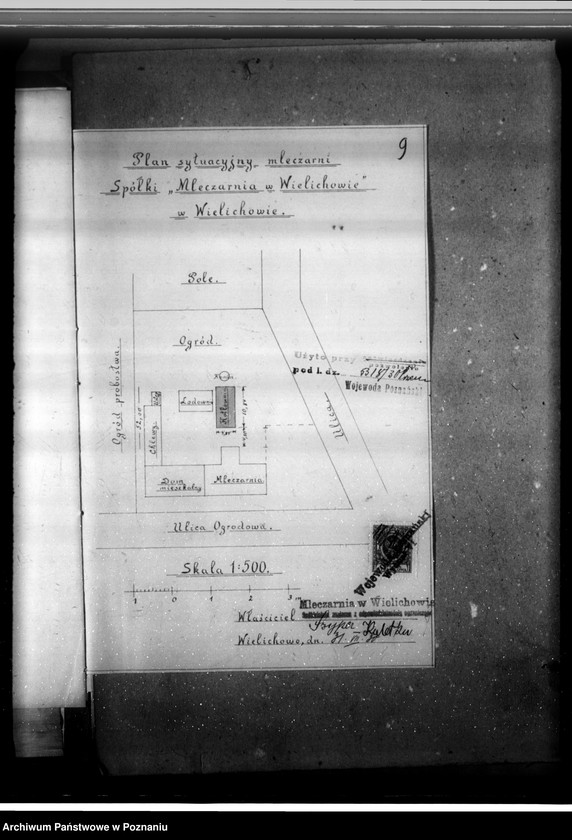 9
Plan sytuacyjny mleczarni
Spółki „Mleczarnia w Wielichowie"
w Wielichowie.
Pole.
Ogród.
Ogród probostwa.
Użyto przy
pod l. dz.
Wojewoda Poznański
Lodown.
Kotłown.
Chlewy
Ulica
Dom
mieszkalny
Mleczarnia
Ulica Ogrodowa.
Skala 1:500.
1 0 1 2 3 m
Mleczarnia w Wielichowie
Właściciel
Wielichowo, dn.
Archiwum Państwowe w Poznaniu